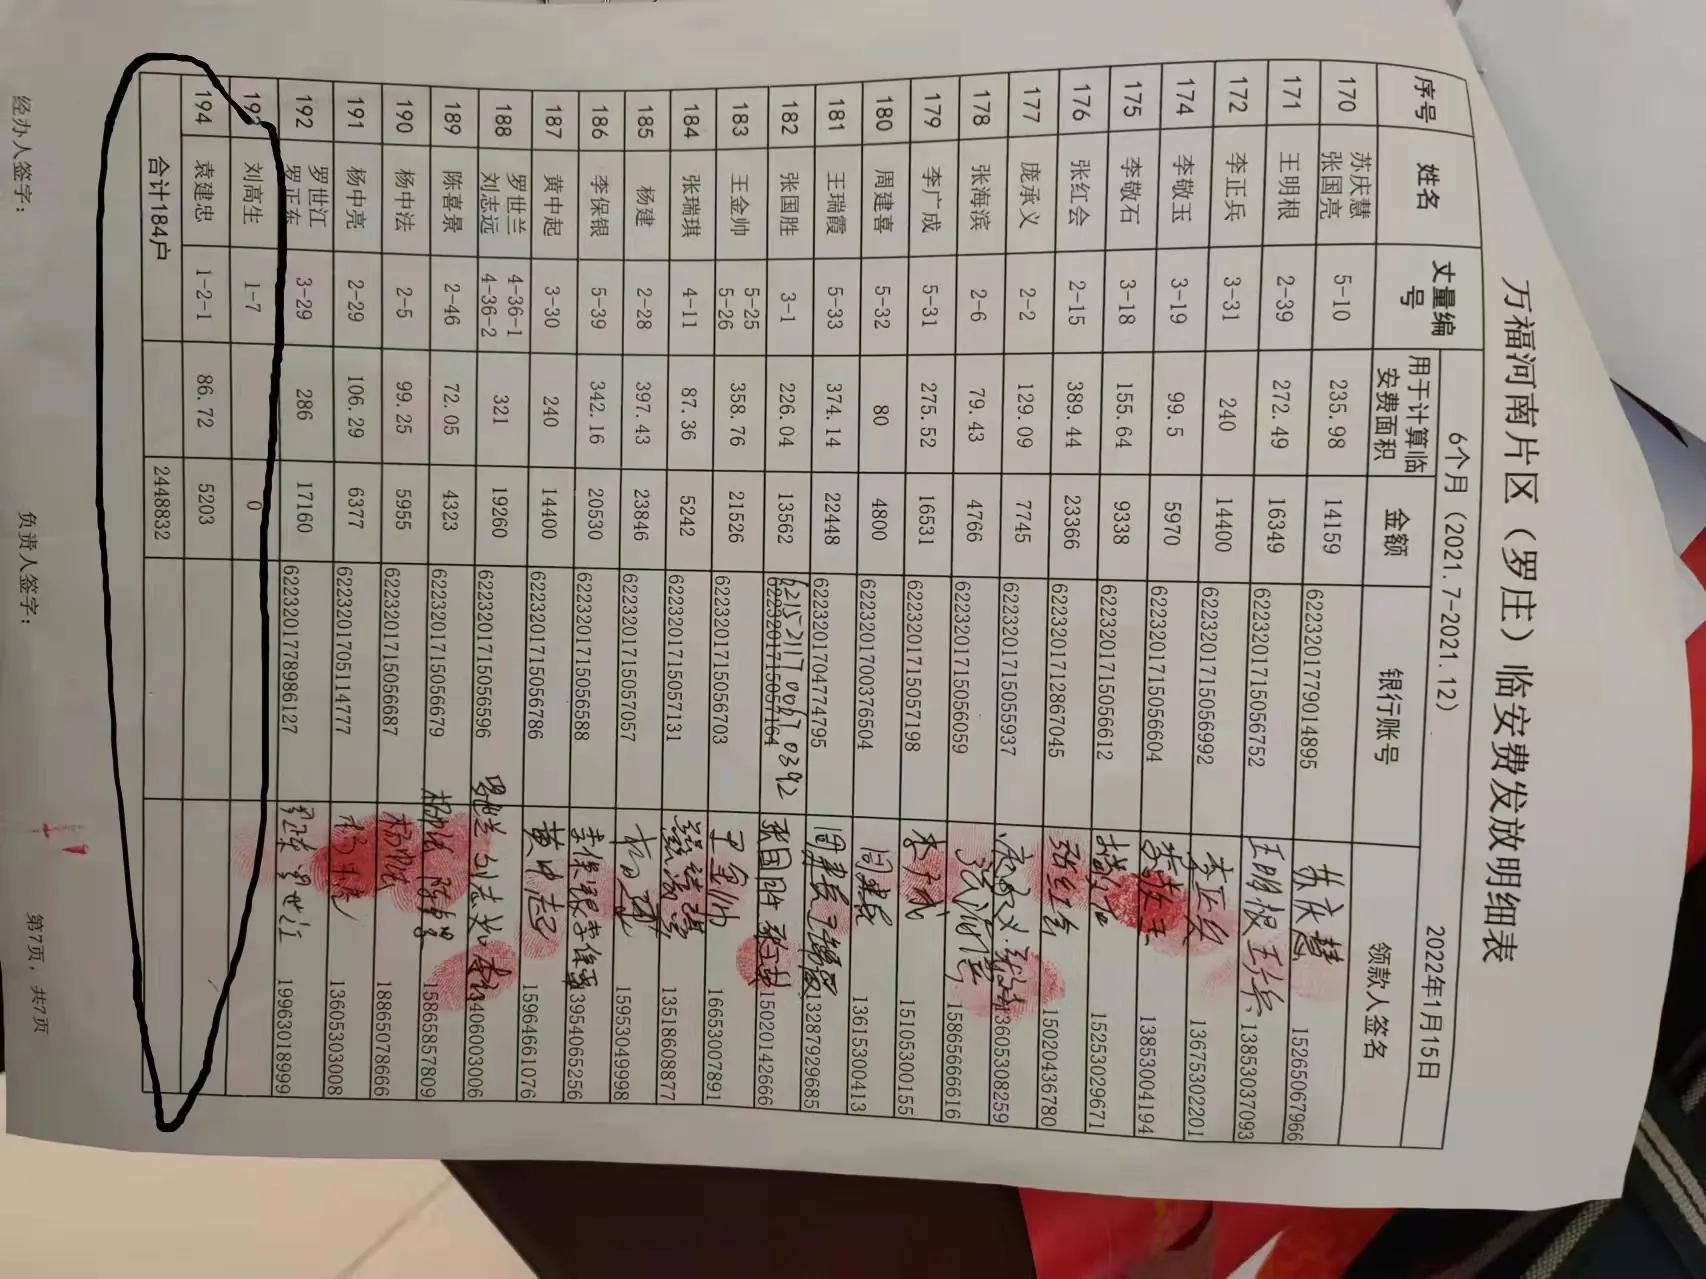 万福河南片区（罗庄）临安费发放明细表
6个月（2021.7-2021.12） 2022年1月15日
序号 姓名 丈量编号 用于计算临安费面积 金额 银行账号 领款人签名
170 苏庆慧 张国亮 5-10 235.98 14159 6223201779014895 苏庆慧 15265067966
171 王明根 2-39 272.49 16349 6223201715056752 王明根 13853037093
172 李正兵 3-31 240 14400 6223201715056992 13675302201
174 李敬玉 3-19 99.5 5970 6223201715056604 李敬玉 13853004194
175 李敬石 3-18 155.64 9338 6223201715056612 15253029671
176 张红会 2-15 389.44 23366 6223201712867045 15020436780
177 庞承义 2-2 129.09 7745 6223201715055937 13605308259
178 张海滨 2-6 79.43 4766 6223201715056059 张海滨 15865666616
179 李广成 5-31 275.52 16531 6223201715057198 李广成 15105300155
180 周建喜 5-32 80 4800 6223201700376504 周建喜 13615300413
181 王瑞霞 5-33 374.14 22448 6223201704774795 周建喜 王瑞霞 13287929685
182 张国胜 3-1 226.04 13562 6223201715057164 张国胜 15020142666
183 王金帅 5-25 5-26 358.76 21526 6223201715056703 王金帅 16653007891
184 张瑞琪 4-11 87.36 5242 6223201715057131 13518608877
185 杨建 2-28 397.43 23846 6223201715057057 15953049998
186 李保银 5-39 342.16 20530 6223201715056588 李保银 李保银 13954065256
187 黄中起 3-30 240 14400 6223201715056786 黄中起 15964661076
188 罗世兰 刘志远 4-36-1 4-36-2 321 19260 6223201715056596 罗世兰 刘志远 13406003006
189 陈喜景 2-46 72.05 4323 6223201715056679 15865857809
190 杨中法 2-5 99.25 5955 6223201715056687 杨中法 18865078666
191 杨中亮 2-29 106.29 6377 6223201705114777 13605303008
192 罗世江 罗正东 3-29 286 17160 6223201778986127 罗正东 罗世江 19963018999
193 刘高生 1-7 0
194 袁建忠 1-2-1 86.72 5203
合计184户 2448832
经办人签字： 负责人签字： 第7页，共7页